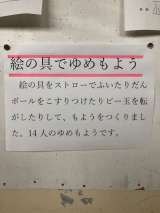 絵の具でゆめもよう
絵の具をストローでふいたりだん
ボールをこすりつけたりビー玉を転
がしたりして、もようをつくりまし
た。14人のゆめもようです。